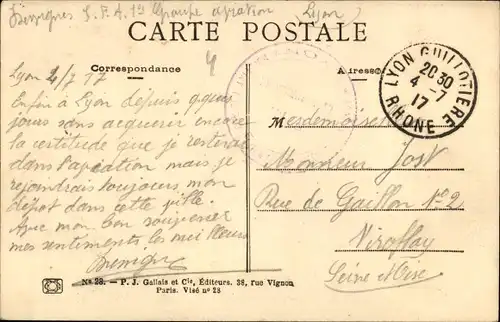 S.F.A. 1er Groupe aviation (Lyon)
CARTE POSTALE
Correspondance
Adresse
LYON GUILLOTIERE
20 30
4 - 7
17
RHONE
Lyon 4/7 17
Enfin à Lyon depuis qques
jours sans acquerir encore
la certitude que je resterai
dans l'aviation mais je
rejoindrais toujours mon
dépôt dans cette ville.
mon bon souvenir
mes sentiments les meilleurs
Mesdemoiselles
Monsieur Jost
Rue de Gaillon No 2
Viroflay
Seine et Oise
No 28. — P. J. Gallais et Cie, Éditeurs. 38, rue Vignon
Paris. Visé no 28